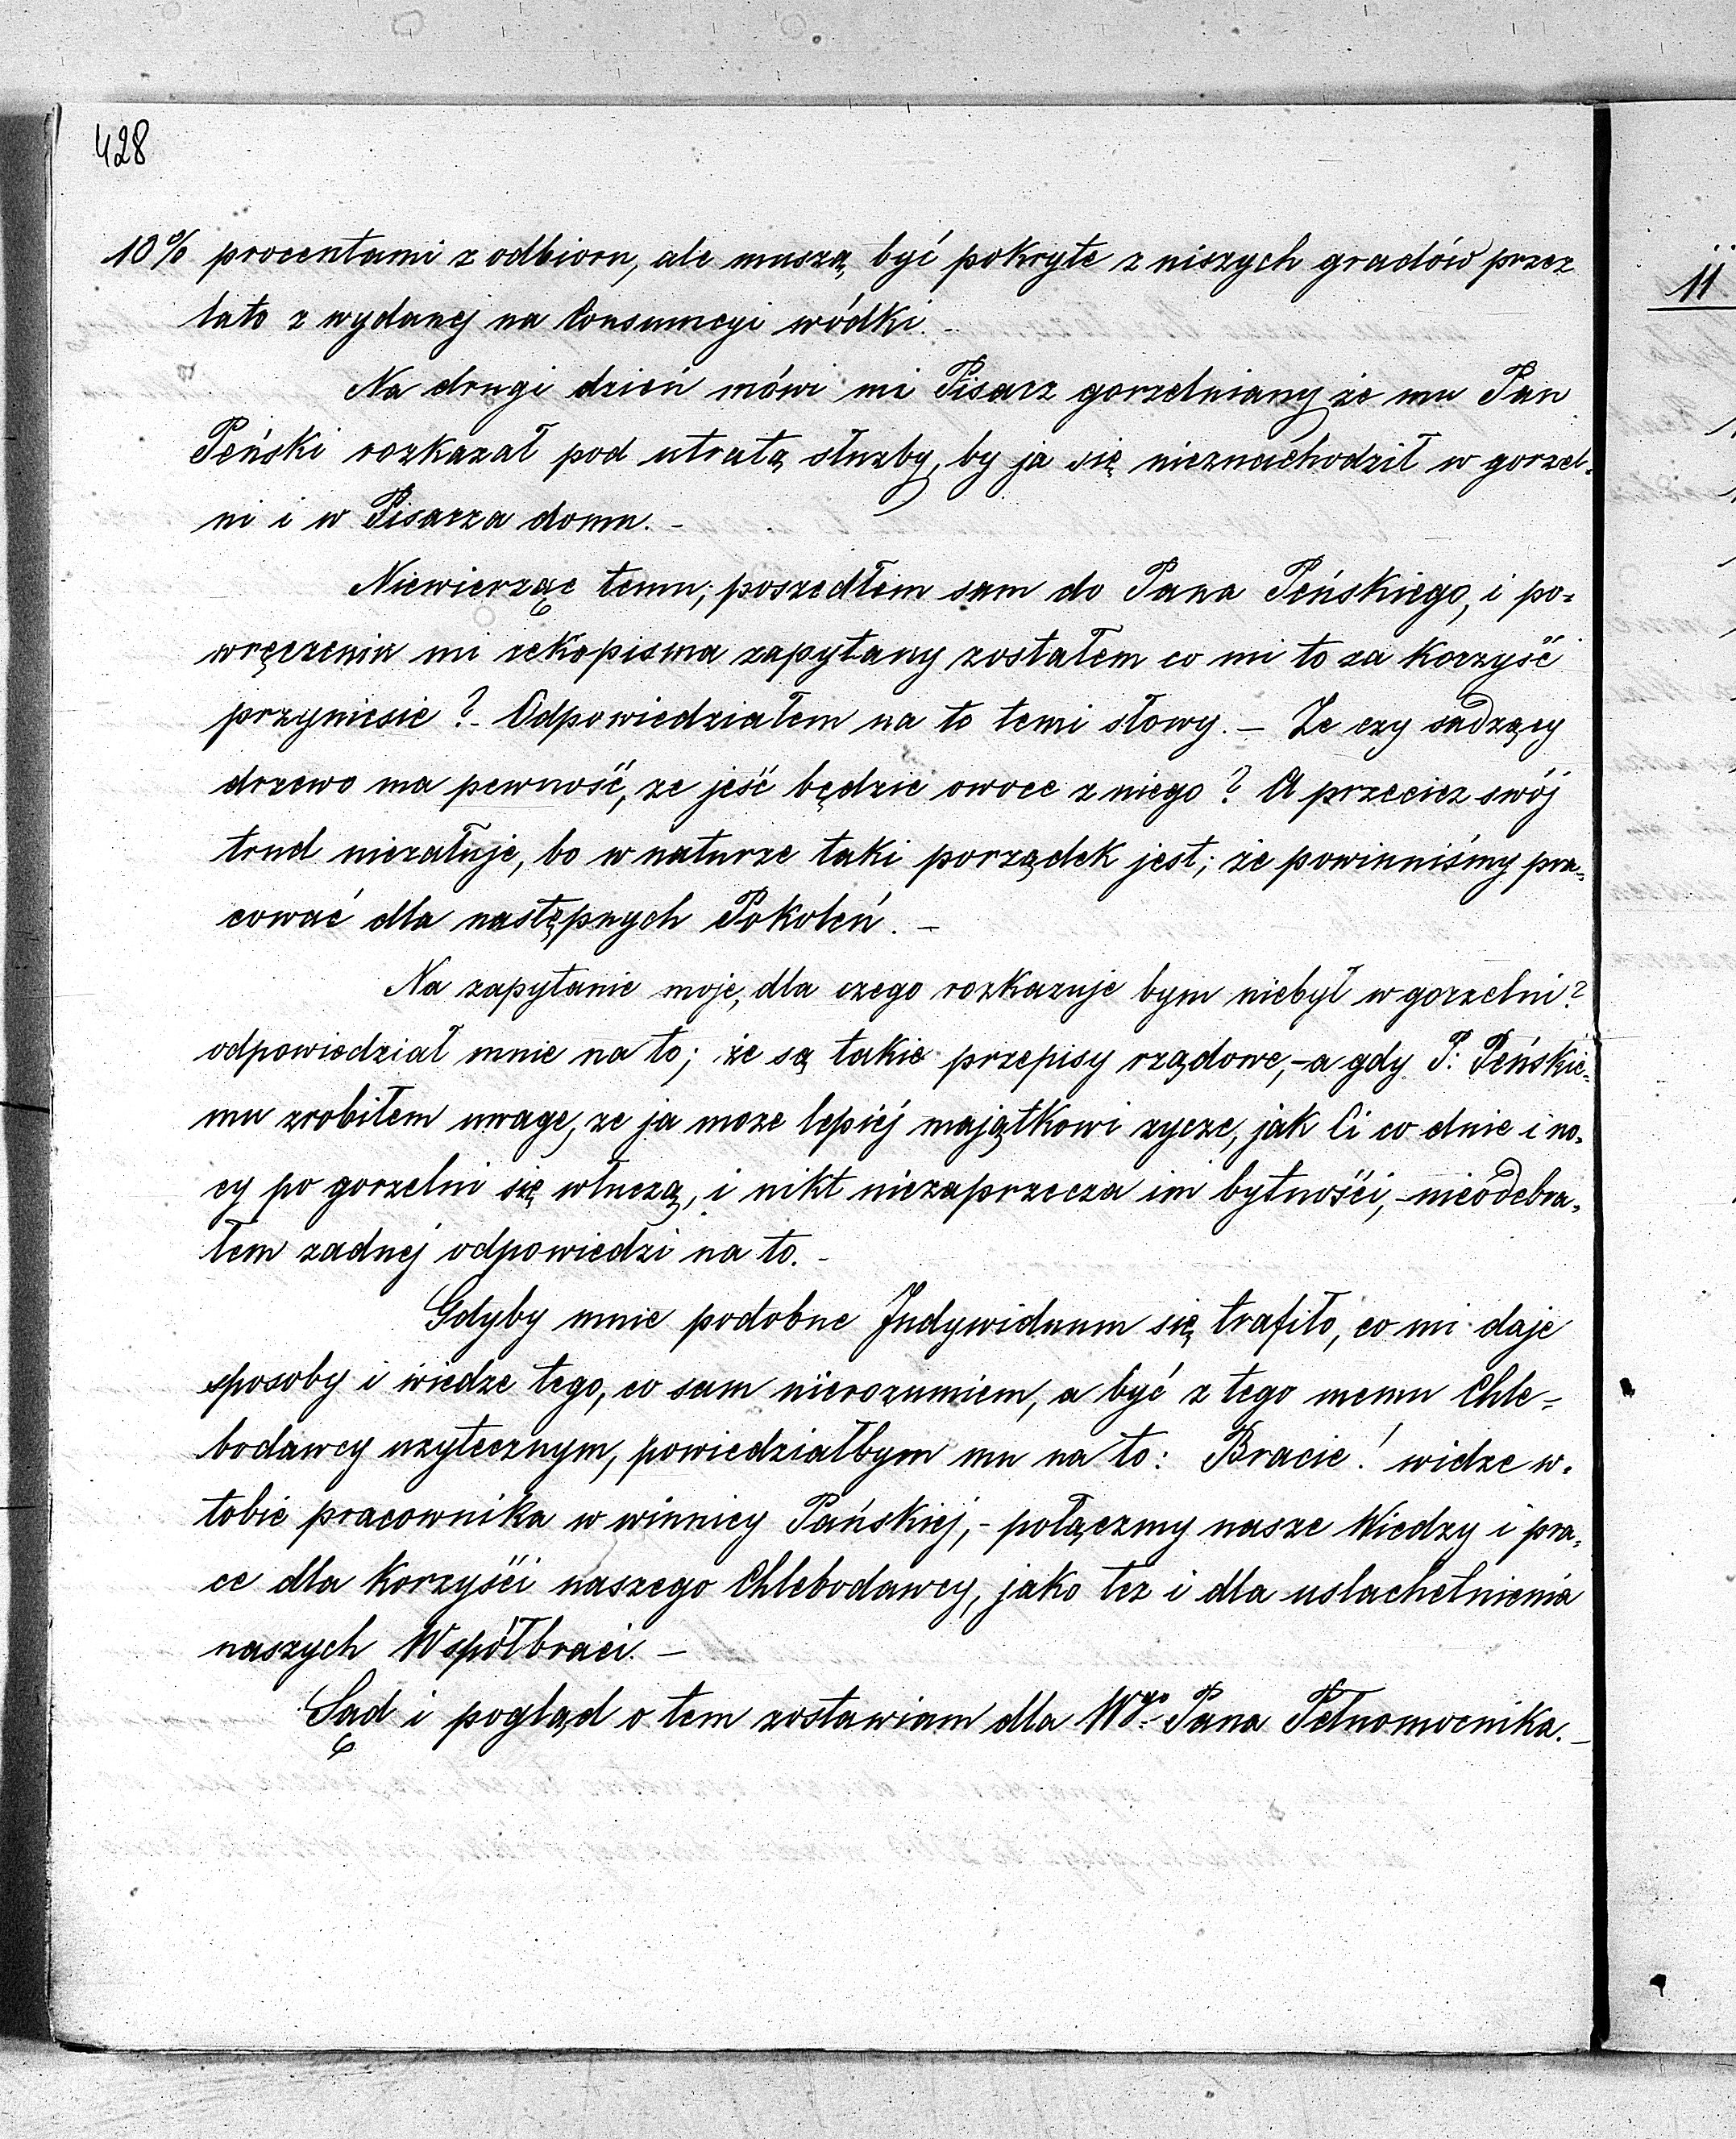 428
10% procentami z odbioru, ale muszą być pokryte z niszych gradów przez
lato z wydanej na Consumcyi wódki. -
Na drugi dzień mówi mi Pisarz gorzelniany że mu Pan
Peński rozkazał pod utratą służby, by ja się nieznachodził w gorzel-
ni i w Pisarza domu. -
Niewierząc temu; poszedłem sam do Pana Peńskiego, i po-
wręczeniu mi rekopisma zapytany zostałem co mi to za korzyść
przyniesie ? - Odpowiedziałem na to temi słowy. — Ze czy sadzący
drzewo ma pewność, ze jeść będzie owoce z niego ? A przeciez swój
trud niezałuje, bo w naturze taki porządek jest; że powinniśmy pra-
cować dla następnych Pokoleń. —
Na zapytanie moje, dla czego rozkazuje bym niebył w gorzelni ?
odpowiedział mnie na to; że są takie przepisy rządowe, - a gdy P: Peńskie-
mu zrobiłem uwage, ze ja moze lepiéj majątkowi zycze, jak Ci co dnie i no-
cy po gorzelni się włuczą, i nikt niezaprzecza im bytnośći, - nieodebra-
łem zadnéj odpowiedzi na to. -
Gdyby mnie podobne Indywiduum się trafiło, co mi daje
sposoby i wiedze tego, co sam nierozumiem, a być z tego memu Chle-
bodawcy uzytecznym, powiedziałbym mu na to: Bracie ! widze w-
tobie pracownika w winnicy Pańskiéj, - połączmy nasze Wiedzy i pra-
ce dla korzyśći naszego Chlebodawcy, jako tez i dla uslachetnienia
naszych Współbraci. —
Sąd i pogląd o tem zostawiam dla Wgo Pana Pełnomocnika. —
11